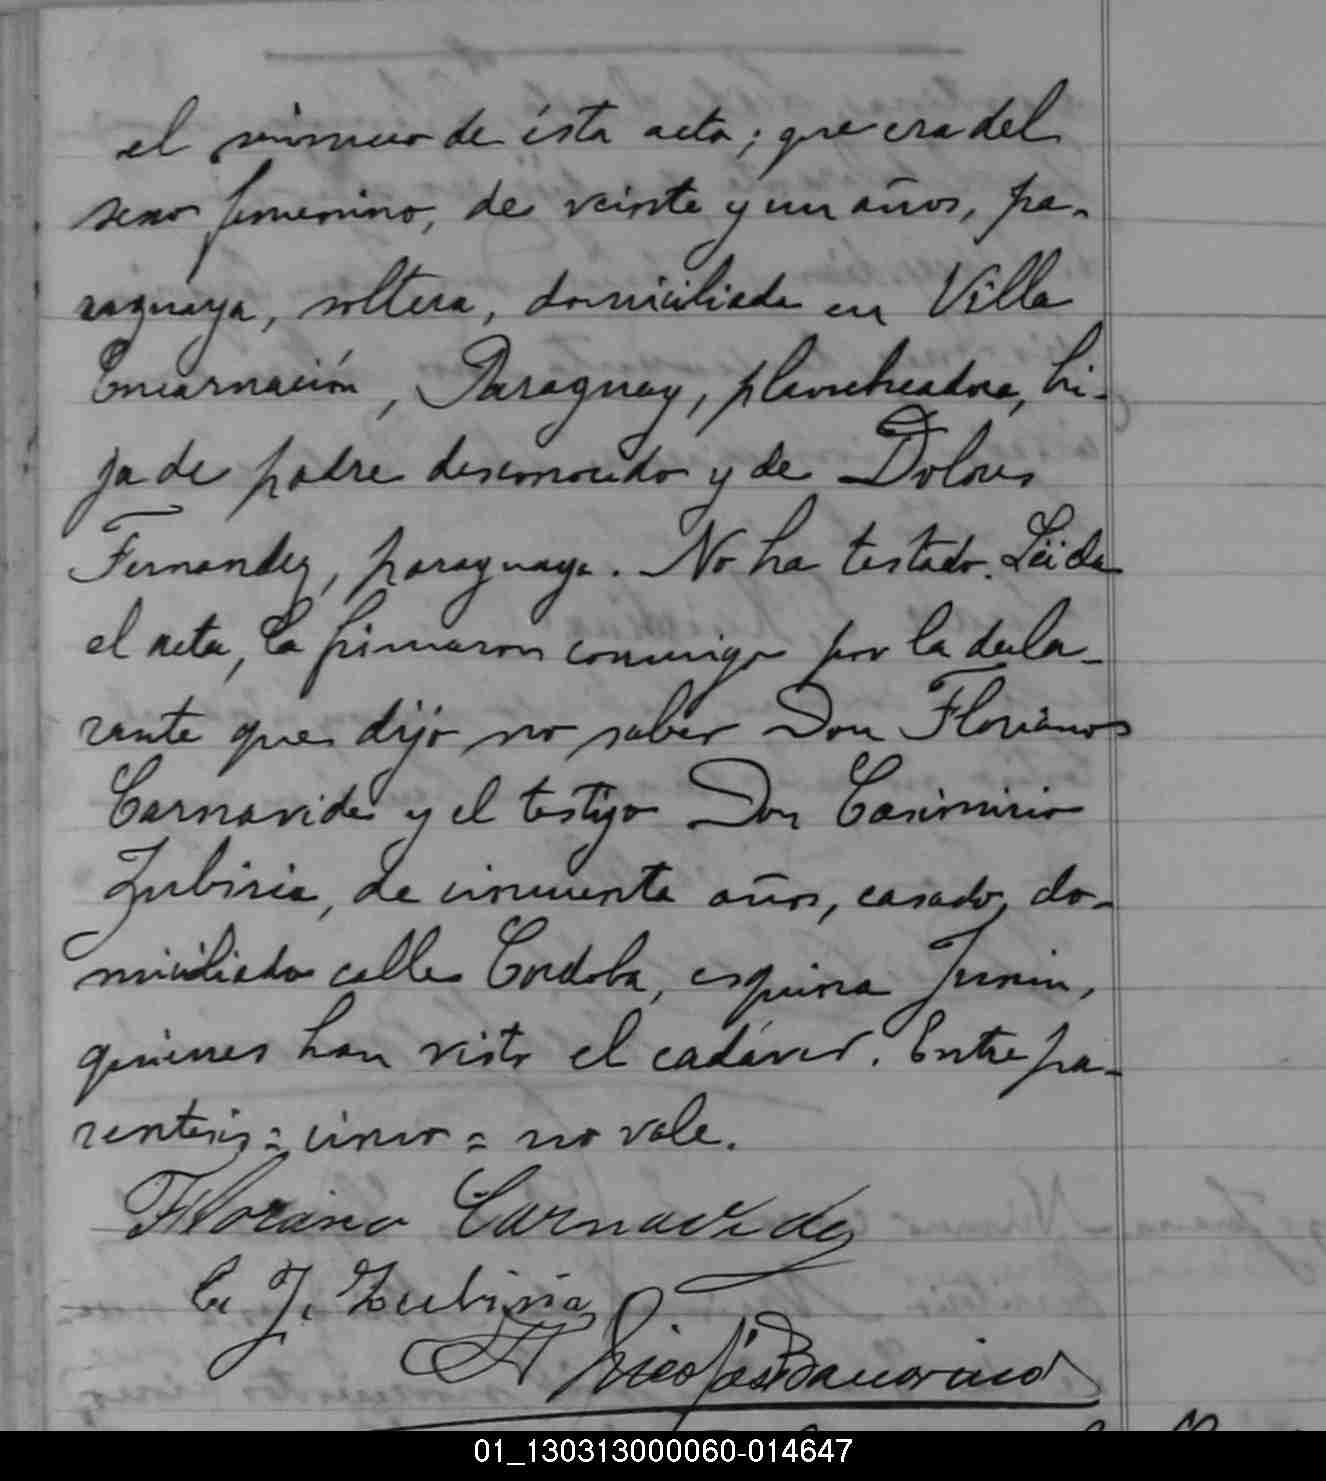 el número de ésta acta; que era del
sexo femenino, de veinte y un años, pa-
raguaya, soltera, domiciliada en Villa
Encarnación, Paraguay, planchadora, hi-
ja de padre desconocido y de Dolores
Fernandez, paraguaya. No ha testado. Leida
el acta, la firmaron conmigo por la decla-
rante que dijo no saber Don Floriano
Carnavides y el testigo Don Casimiro
Zubiria, de cincuenta años, casado, do-
miciliado calle Cordoba, esquina Junin,
quienes han visto el cadáver. Entre pa-
rentesis = cinco = no vale.
Floriano Carnavides
C. J. Zubiria
Nicolás
01_130313000060-014647